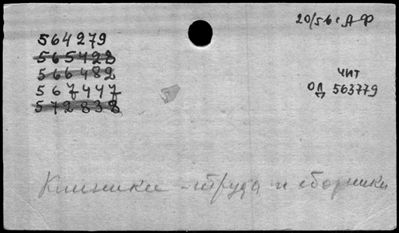 20/56 с А-Ф
564279
565428
566482
567447
572838
ЧИТ
ОД 563779
Клиники - труды и сборники